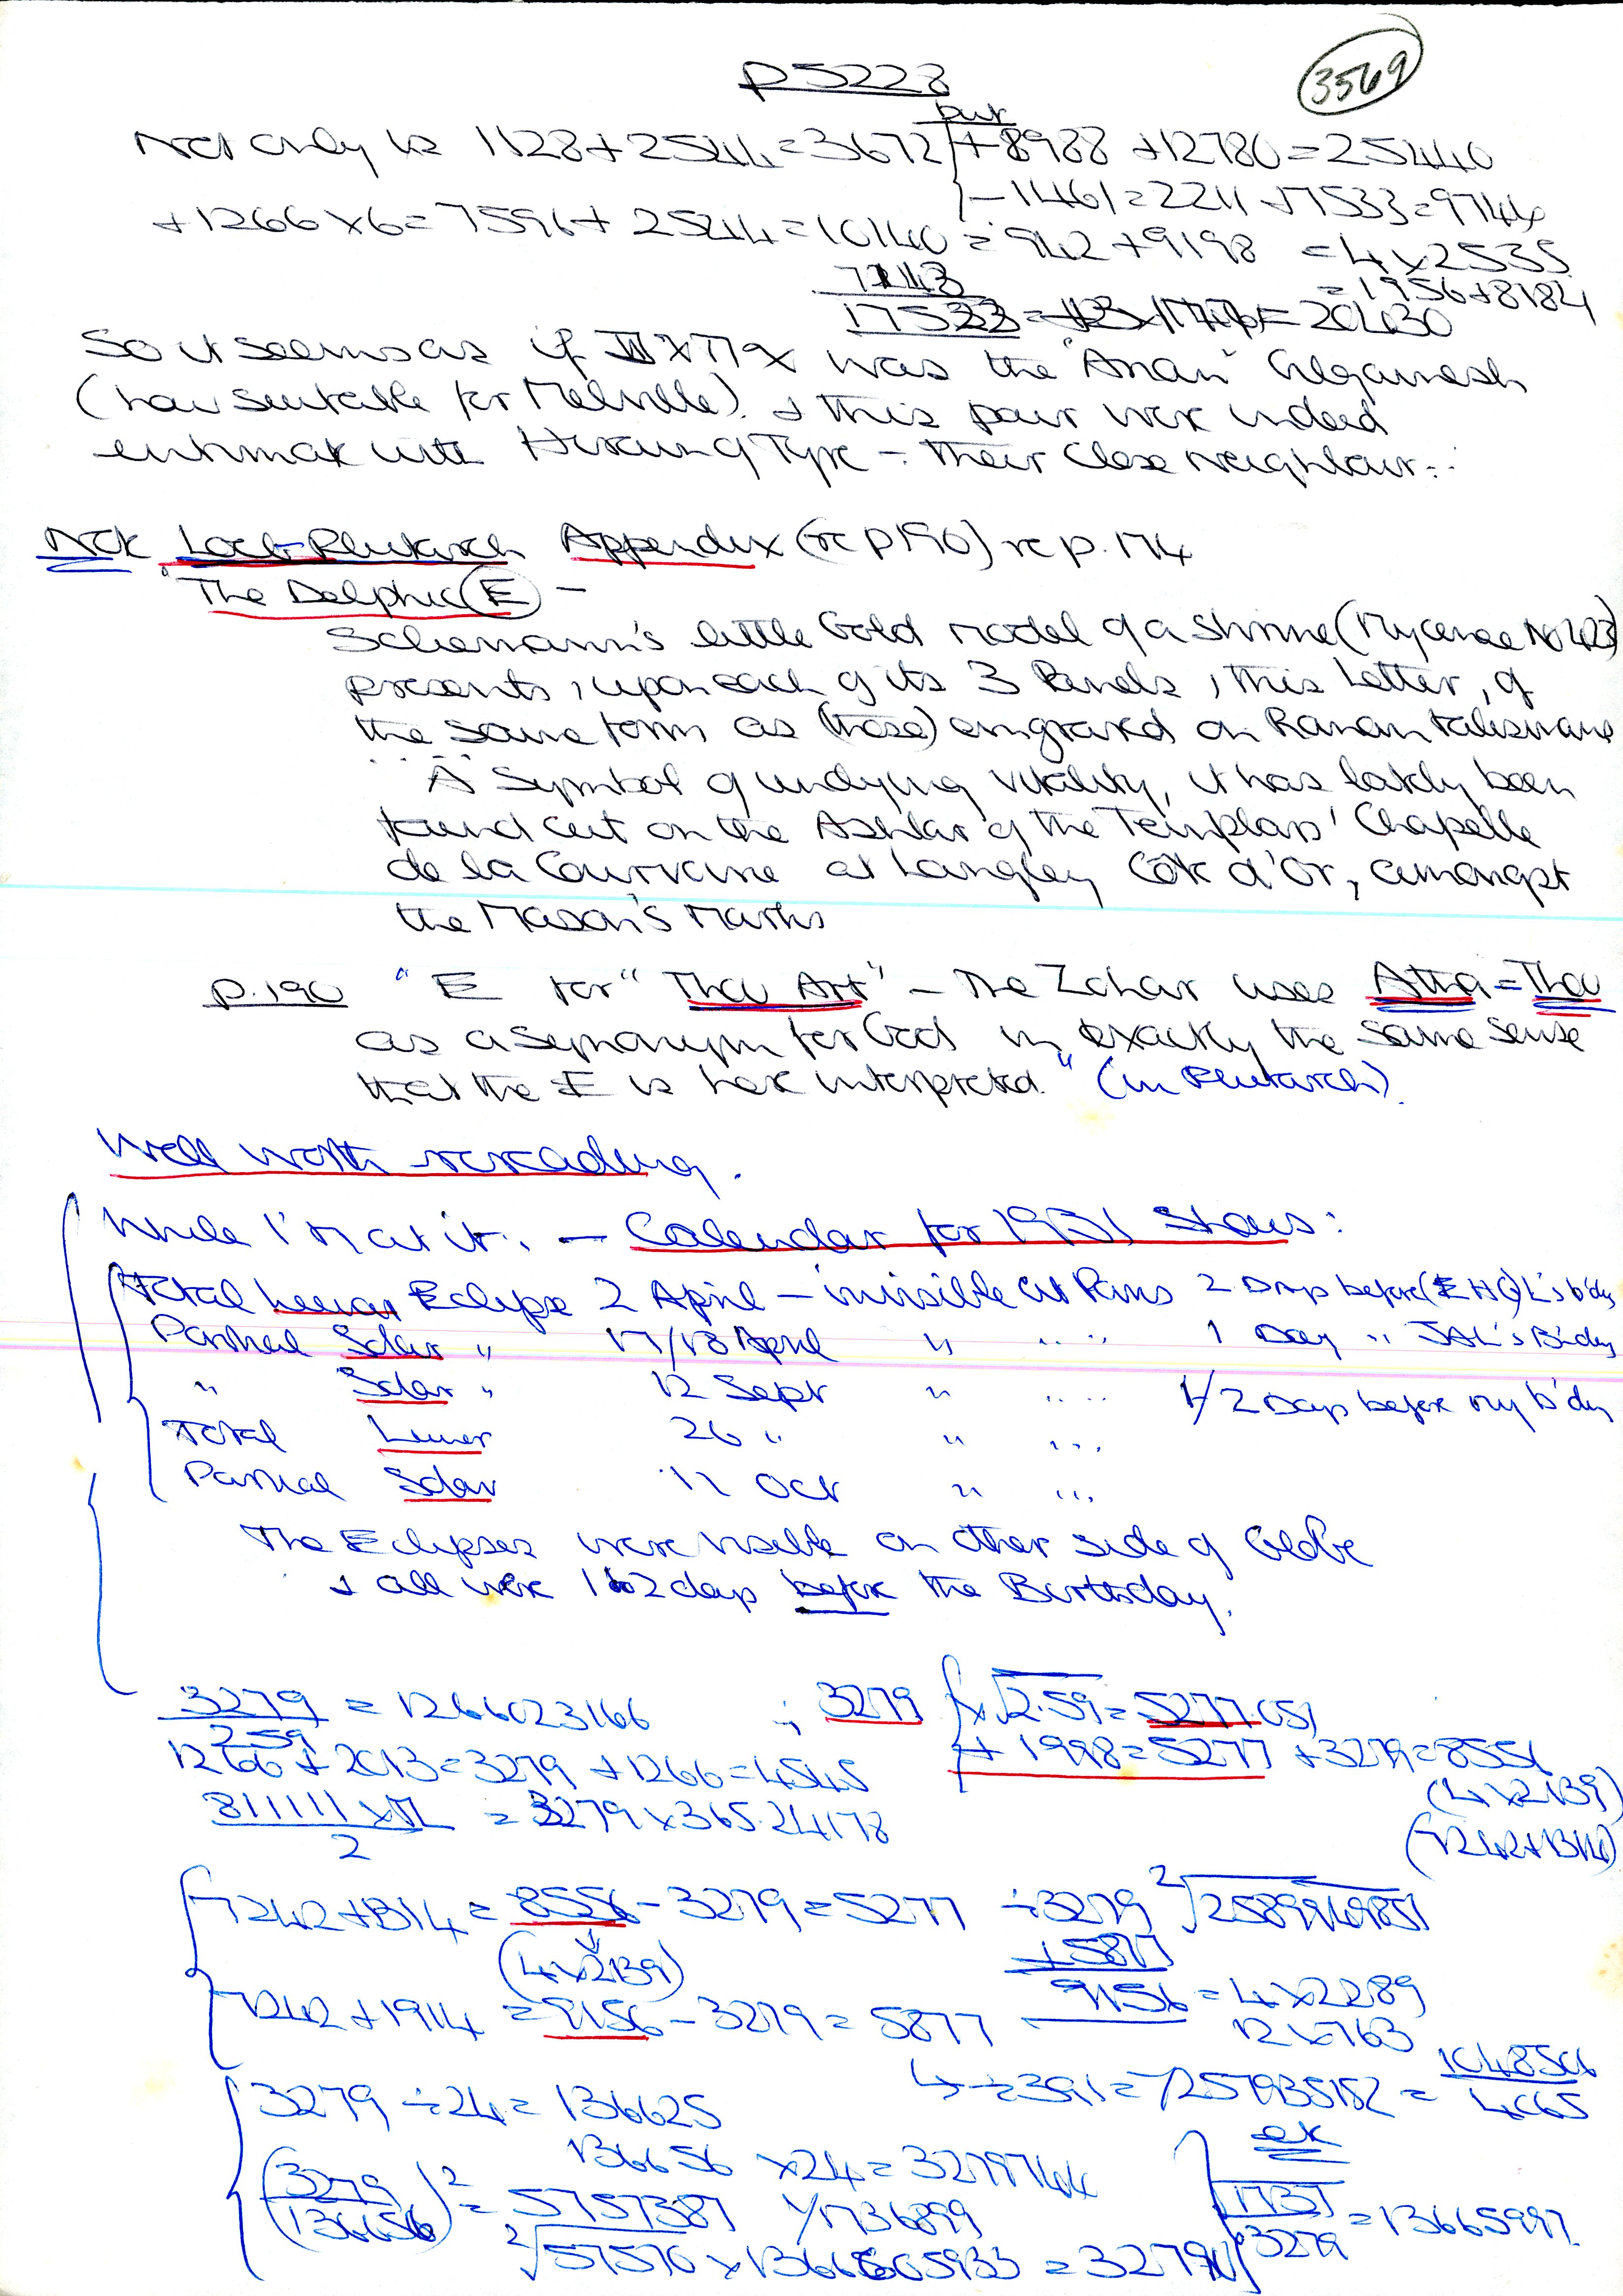 p5228
3569
but
Not only is 1128 + 2544 = 3672 + 8988 + 12780 = 25440
- 1461 = 2211 + 7533 = 9744
+ 1266 x 6 = 7596 + 2544 = 10140 = 942 + 9198 = 4 x 2535
= 1956 + 8184
7143
17533 = = 20430
So it seems as if was the "Anan" Gilgamesh
(how suitable for Melville). & this pair were indeed
intimate with Hiram of Tyre - their close neighbour..
Note Loeb-Plutarch Appendix (re p190) re p. 174
"The Delphic E -
Schiemann's little Gold model of a shrine (Mycenae No 423)
presents, upon each of its 3 Panels, this Letter, of
the same form as (those) engraved on Roman talismans
A Symbol of undying vitality, it has lately been
found cut on the Ashlar of the Templars' Chapelle
de la at Langley Côte d'Or, amongst
the Mason's Marks
p.190 "E for "Thou Art" - The Zohar uses Atta = Thou
as a synonym for God in exactly the same sense
that the E is here interpreted." (in Plutarch).
Well worth rereading.
While I'm at it. - Calendar for 1931 Shows:
Total Lunar Eclipse 2 April - invisible at Paris 2 Days before (EHQ)L's b'day
Partial Solar " 17/18 April " " " 1 Day " JAL's B'day
" Solar " 12 Sept " " " 1/2 Days before my b'day
Total Lunar 26 " " "
Partial Solar 11 Oct " "
The Eclipses were visible on other side of Globe
& all were 1 to 2 days before the Birthday.
3279 = 1266023166 ; 3279 x √2.59 = 5277.051
2.59
1266 + 2013 = 3279 + 1266 = 4545 + 1998 = 5277 + 3279 = 8556
(4 x 2139)
811111 x π = 3279 x 365.24178
2
(7242 + 1314)
7242 + 1314 = 8556 - 3279 = 5277 ÷ 3279 2√2589949851
(4 x 2139) + 5877
7242 + 1914 = 9156 - 3279 = 5877 9156 = 4 x 2289
12 x 763
3279 ÷ 24 = 136625 ÷ 391 = 7257935152 = 1048506
4065
136656 x 24 = 3279744 etc
(3279)² = 5757387 1/1736899 √1737 = 13665997.
(136656) 3279
2√57570 x = 3279